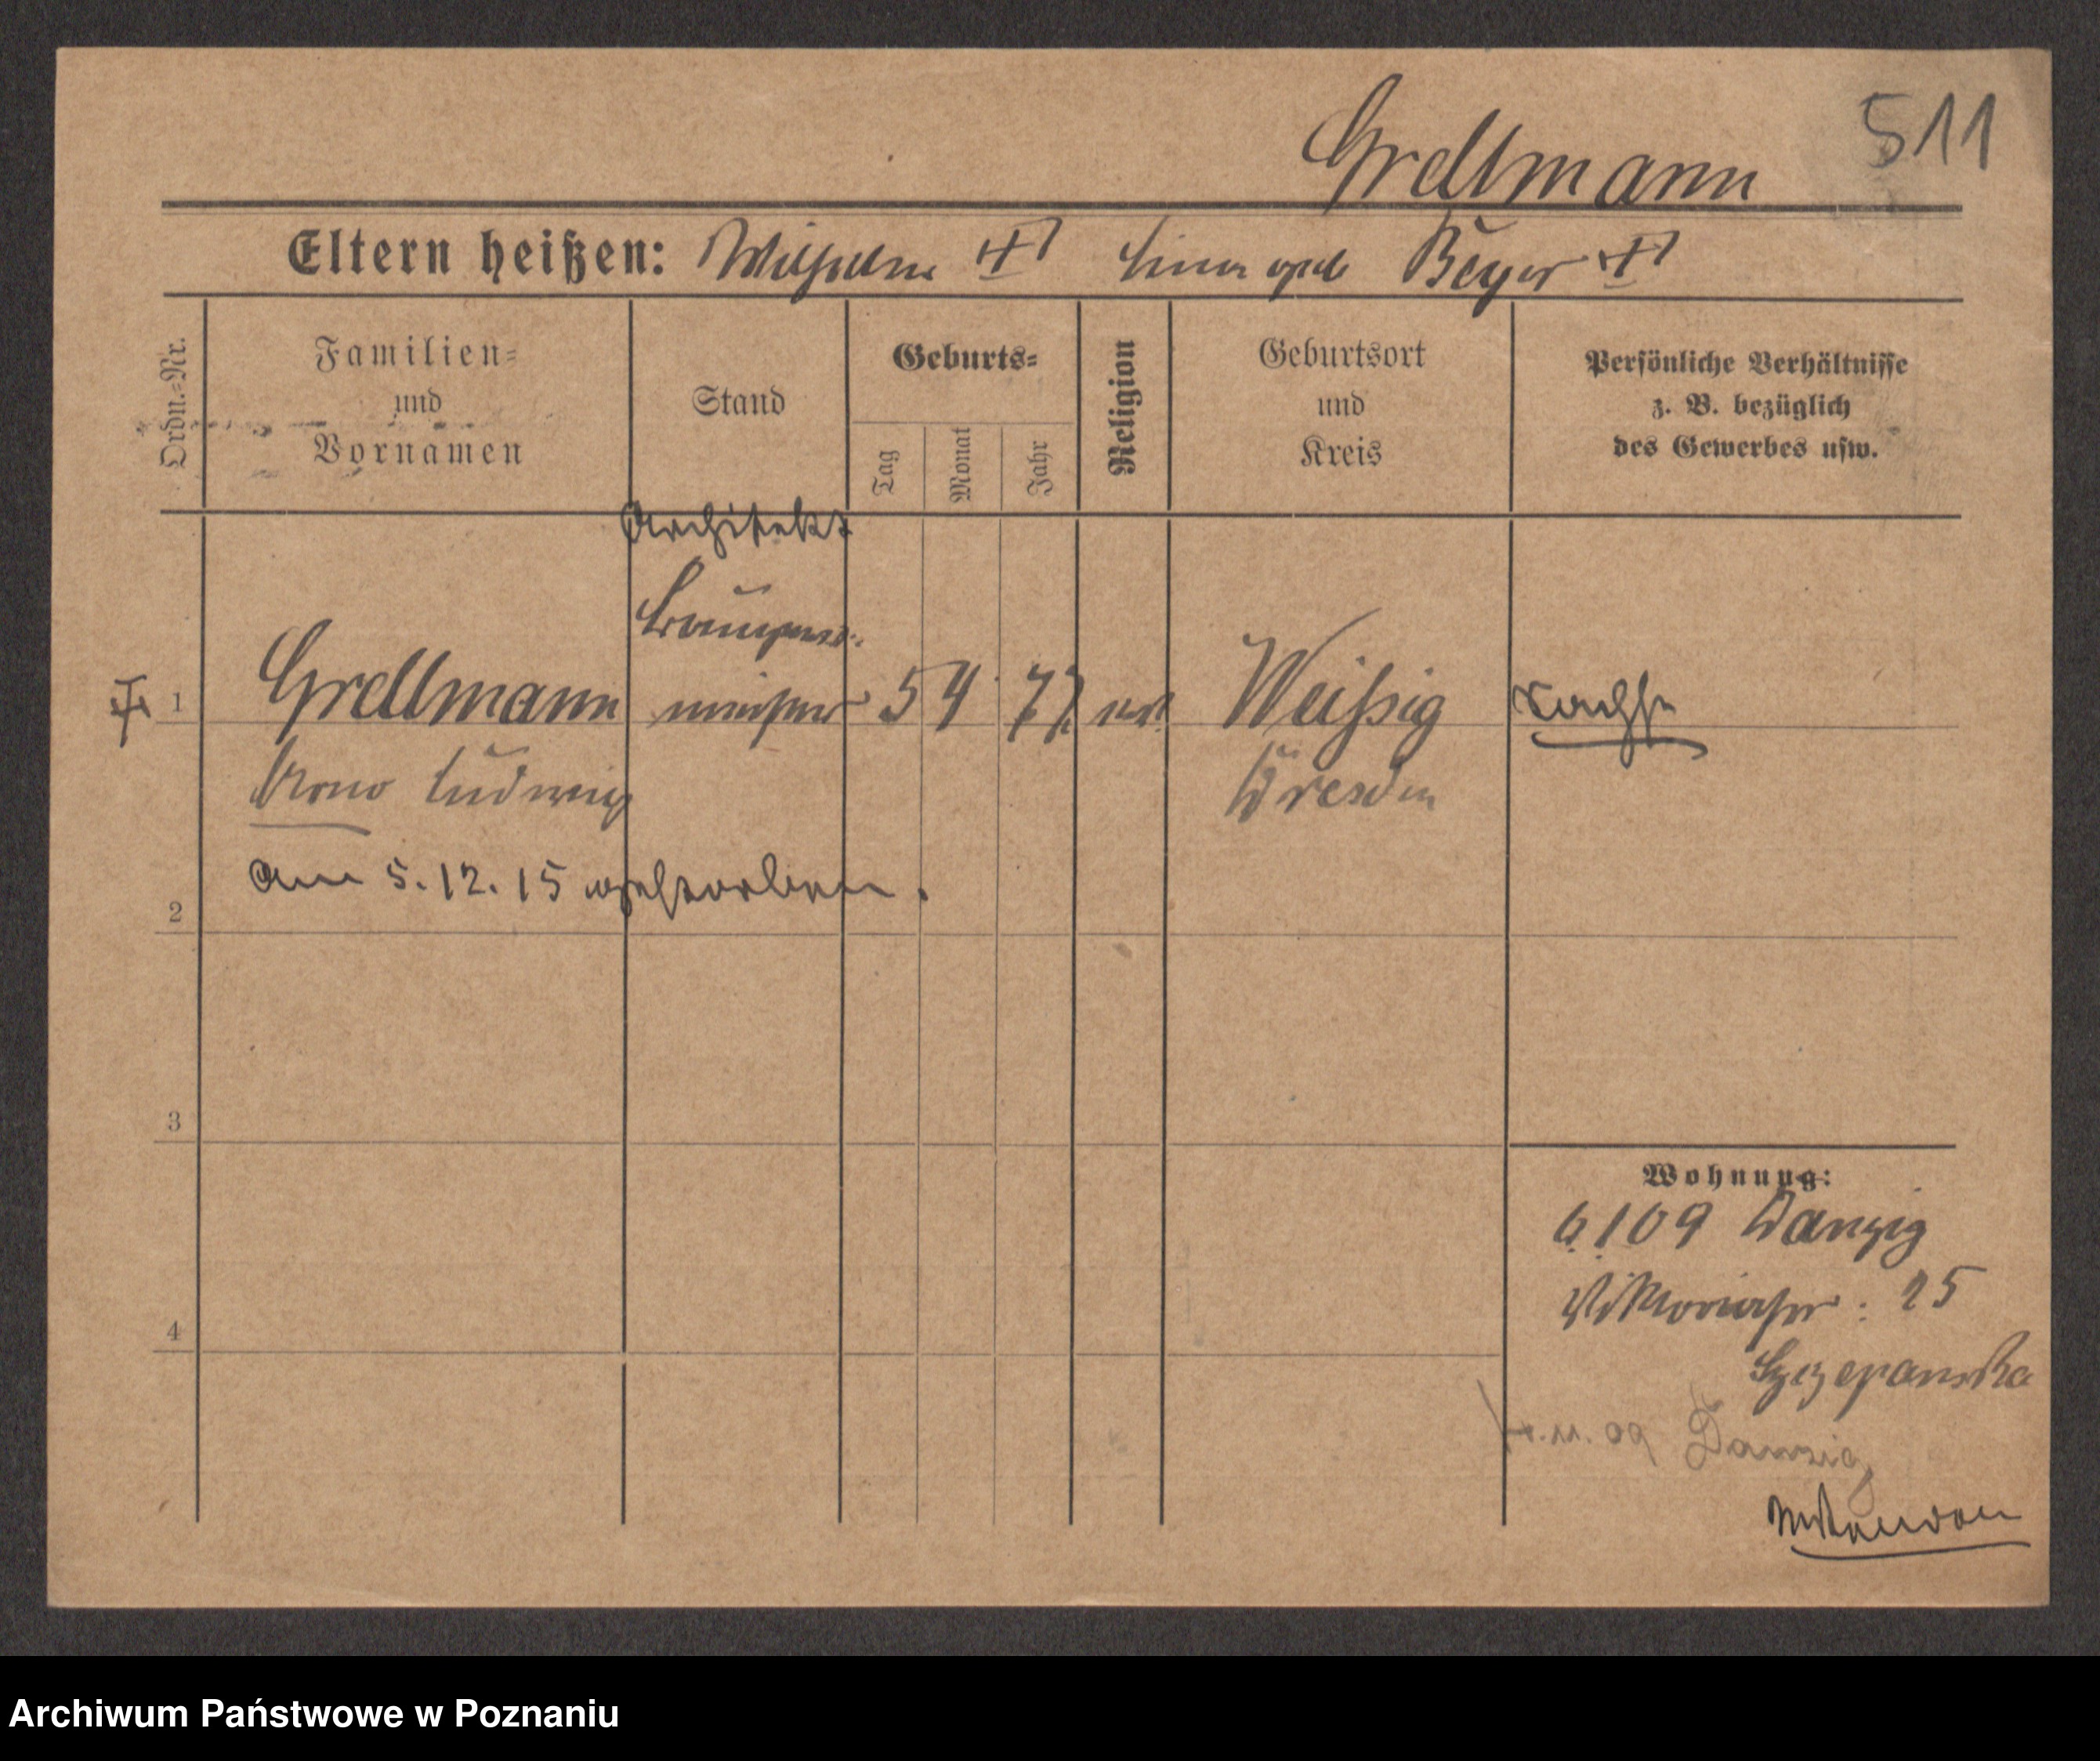 511
Grellmann
Eltern heißen: Wilhelm geb Beyer
Ordn.-Nr.
Familien-
und
Vornamen
Stand
Geburts-
Tag
Monat
Jahr
Religion
Geburtsort
und
Kreis
Persönliche Verhältnisse
z. B. bezüglich
des Gewerbes usw.
Architekt
1 Grellmann meister 5 4 77 ev. Weißig Sachse
Arno Ludwig Dresden
am 5.12.15 gestorben.
2
3
4
Wohnung:
6.1.09 Danzig
Viktoriastr: 25
Szczepanska
.11.09 Danzig
Archiwum Państwowe w Poznaniu